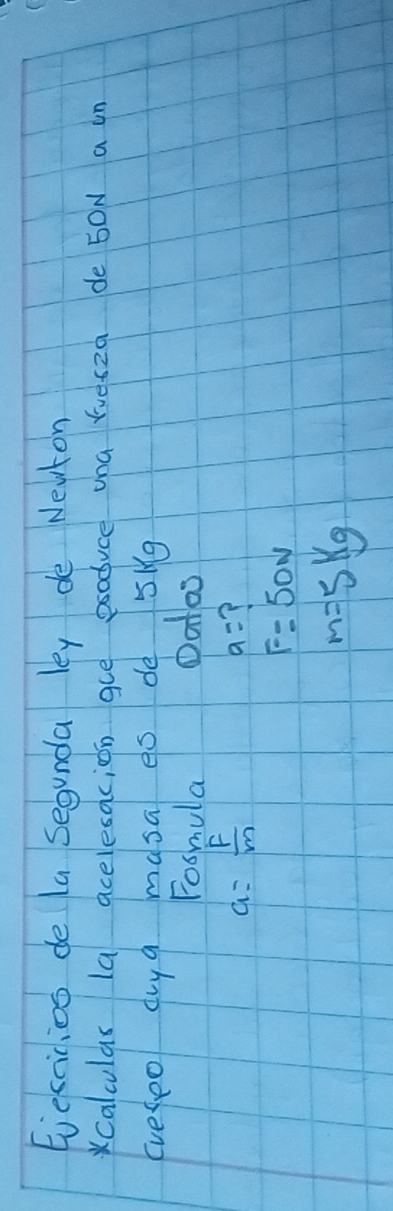 Ejercicios de la Segunda ley de Newton
*Calcular la aceleración que produce una fuerza de 50N a un
cuerpo cuya masa es de 5Kg
Formula Datos
a= F/m a=?
F= 50N
m=5Kg